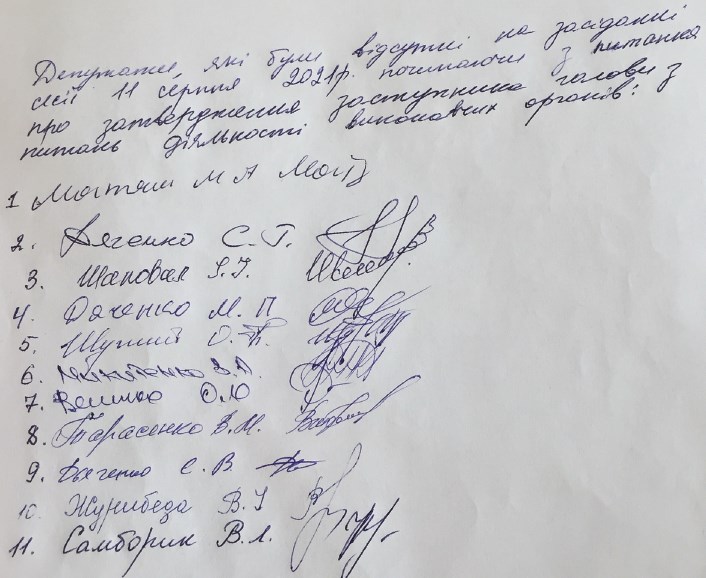 Депутати, які були відсутні на засіданні
сесії 11 серпня 2021р. починаючи з питання
про затвердження заступника голови з
питань діяльності виконавчих органів:
1 М А
2. Дяченко С.Г.
3. Шаповал
4. Дяченко М. П
5. Шушкий О.
6. Микитенко В.А.
7. Величко О.Ю
8. Тарасенко В.М.
9. Дяченко С. В.
10. Журибеда В. І
11. Самборик В.Л.